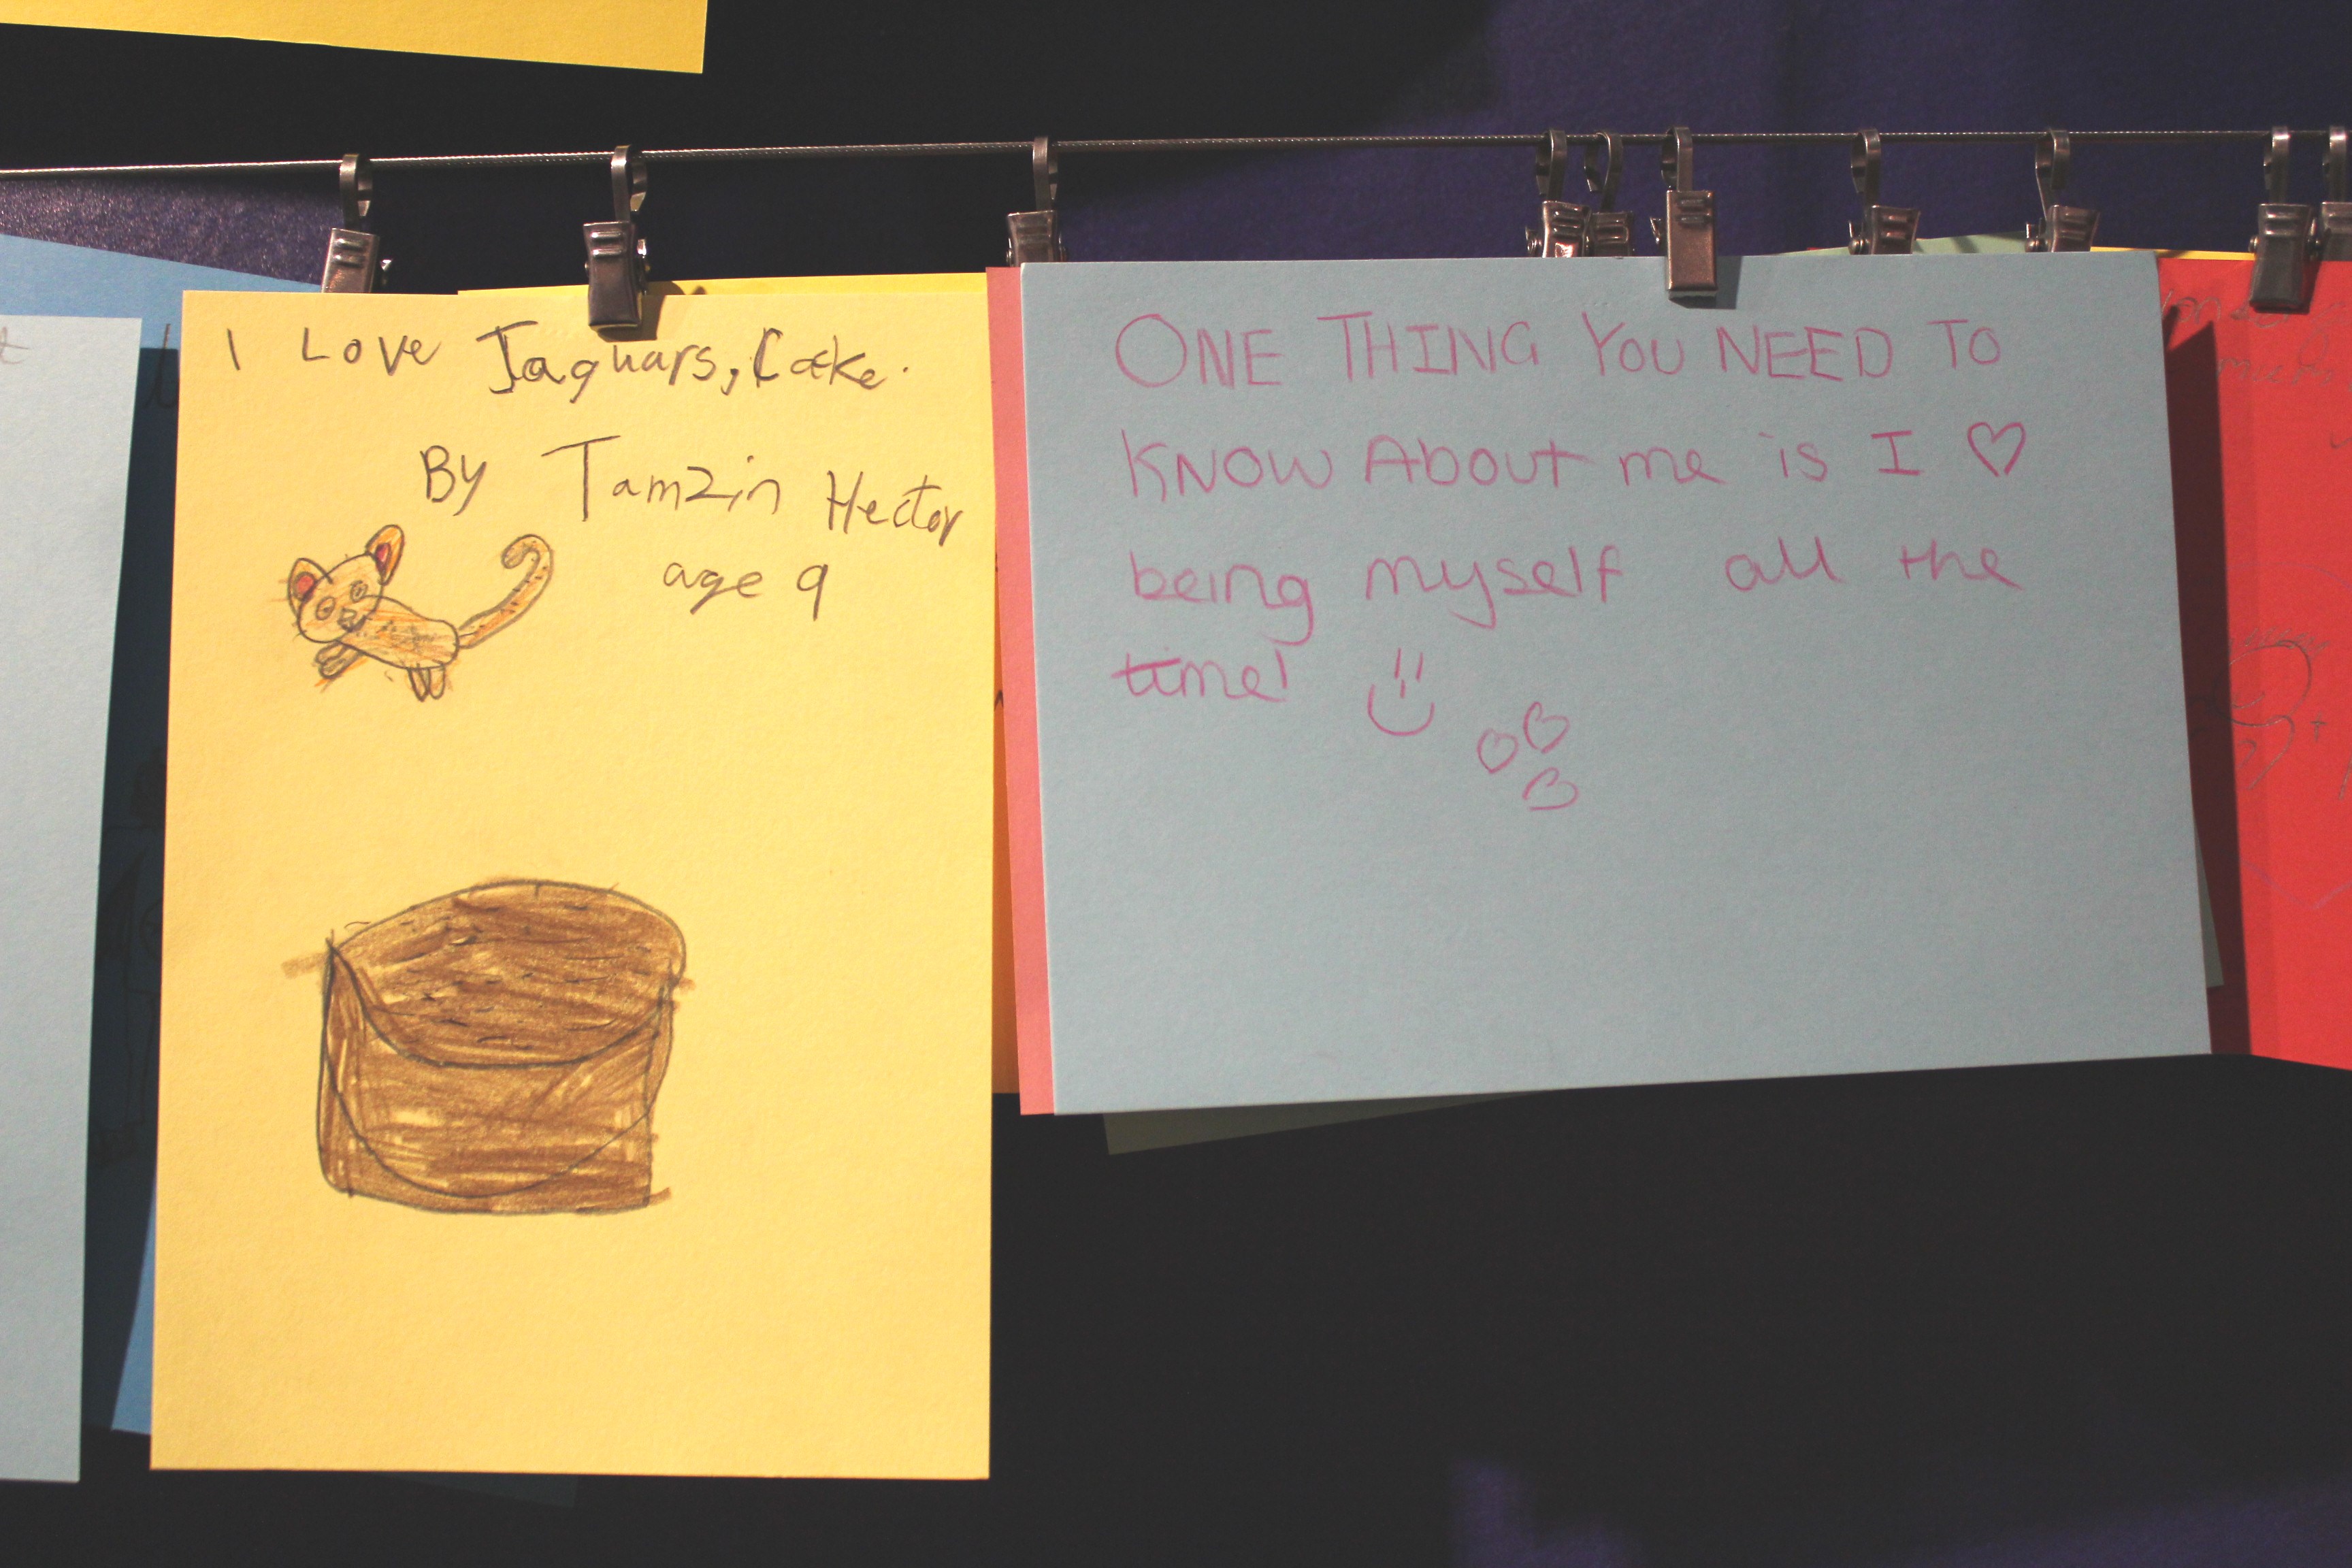 I Love Jaguars, Cake.
By Tamzin Hector
age 9
ONE THING YOU NEED TO
KNOW About me is I ♡
being myself all the
time!